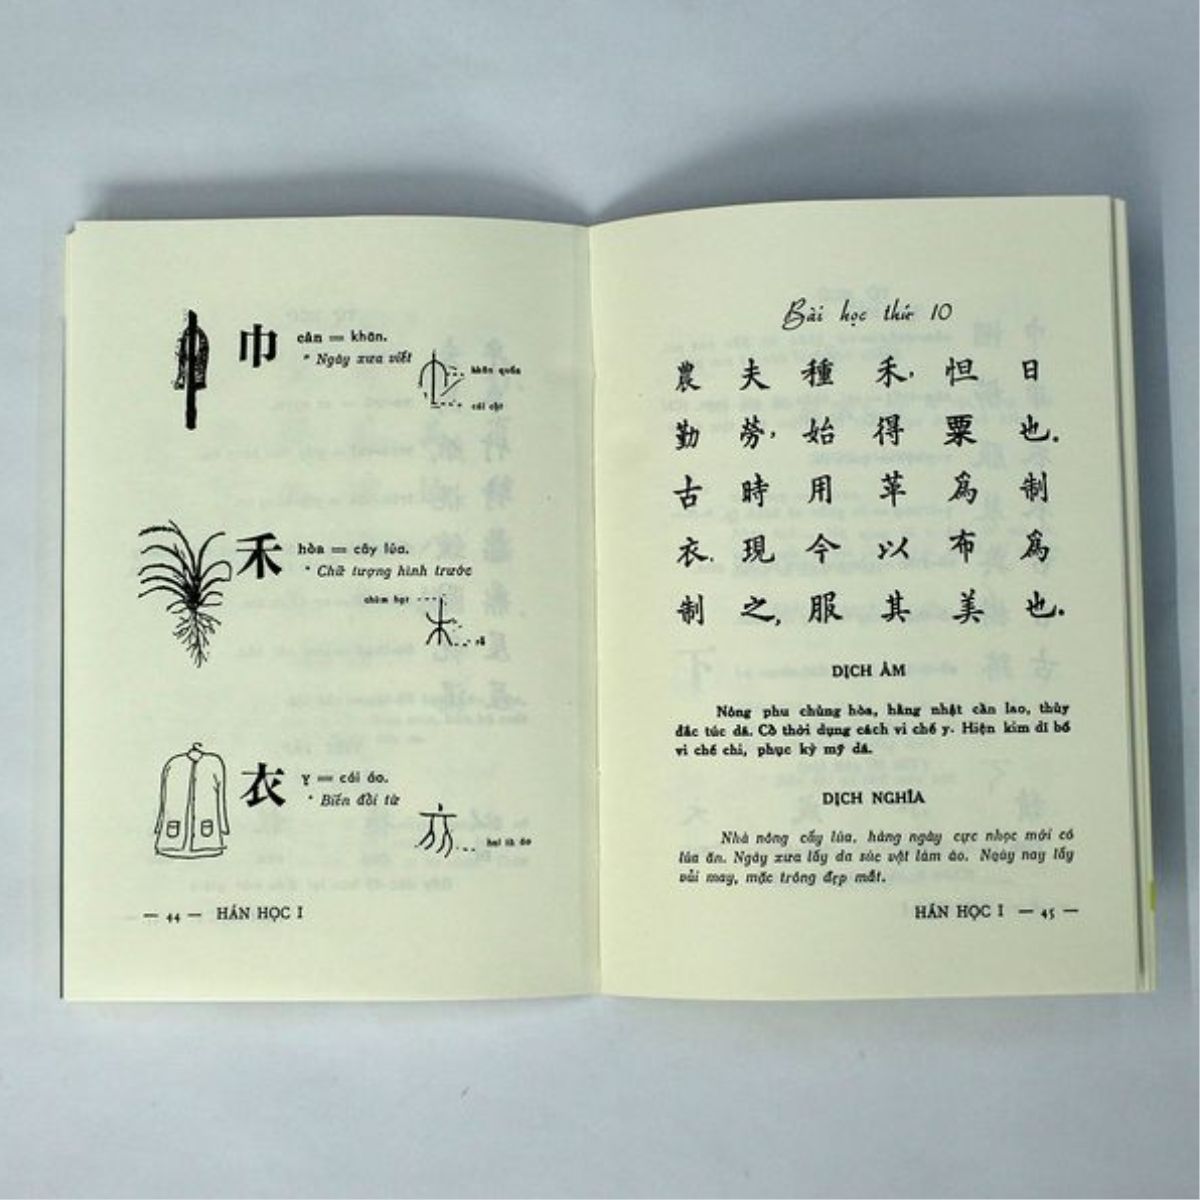 巾
cân = khăn.
* Ngày xưa viết
khăn quấn
cái cột
禾
hòa = cây lúa.
* Chữ tượng hình trước
chùm hạt
rễ
衣
y = cái áo.
* Biến đổi từ
hai tà áo
— 44 — HÁN HỌC I
Bài học thứ 10
農 夫 種 禾, 恒 日
勤 勞, 始 得 粟 也.
古 時 用 革 爲 制
衣. 現 今 以 布 爲
制 之, 服 其 美 也.
DỊCH ÂM
Nông phu chủng hòa, hằng nhật cần lao, thủy
đắc túc dã. Cổ thời dụng cách vi chế y. Hiện kim dĩ bố
vi chế chi, phục kỳ mỹ dã.
DỊCH NGHĨA
Nhà nông cấy lúa, hàng ngày cực nhọc mới có
lúa ăn. Ngày xưa lấy da súc vật làm áo. Ngày nay lấy
vải may, mặc trông đẹp mắt.
HÁN HỌC I — 45 —